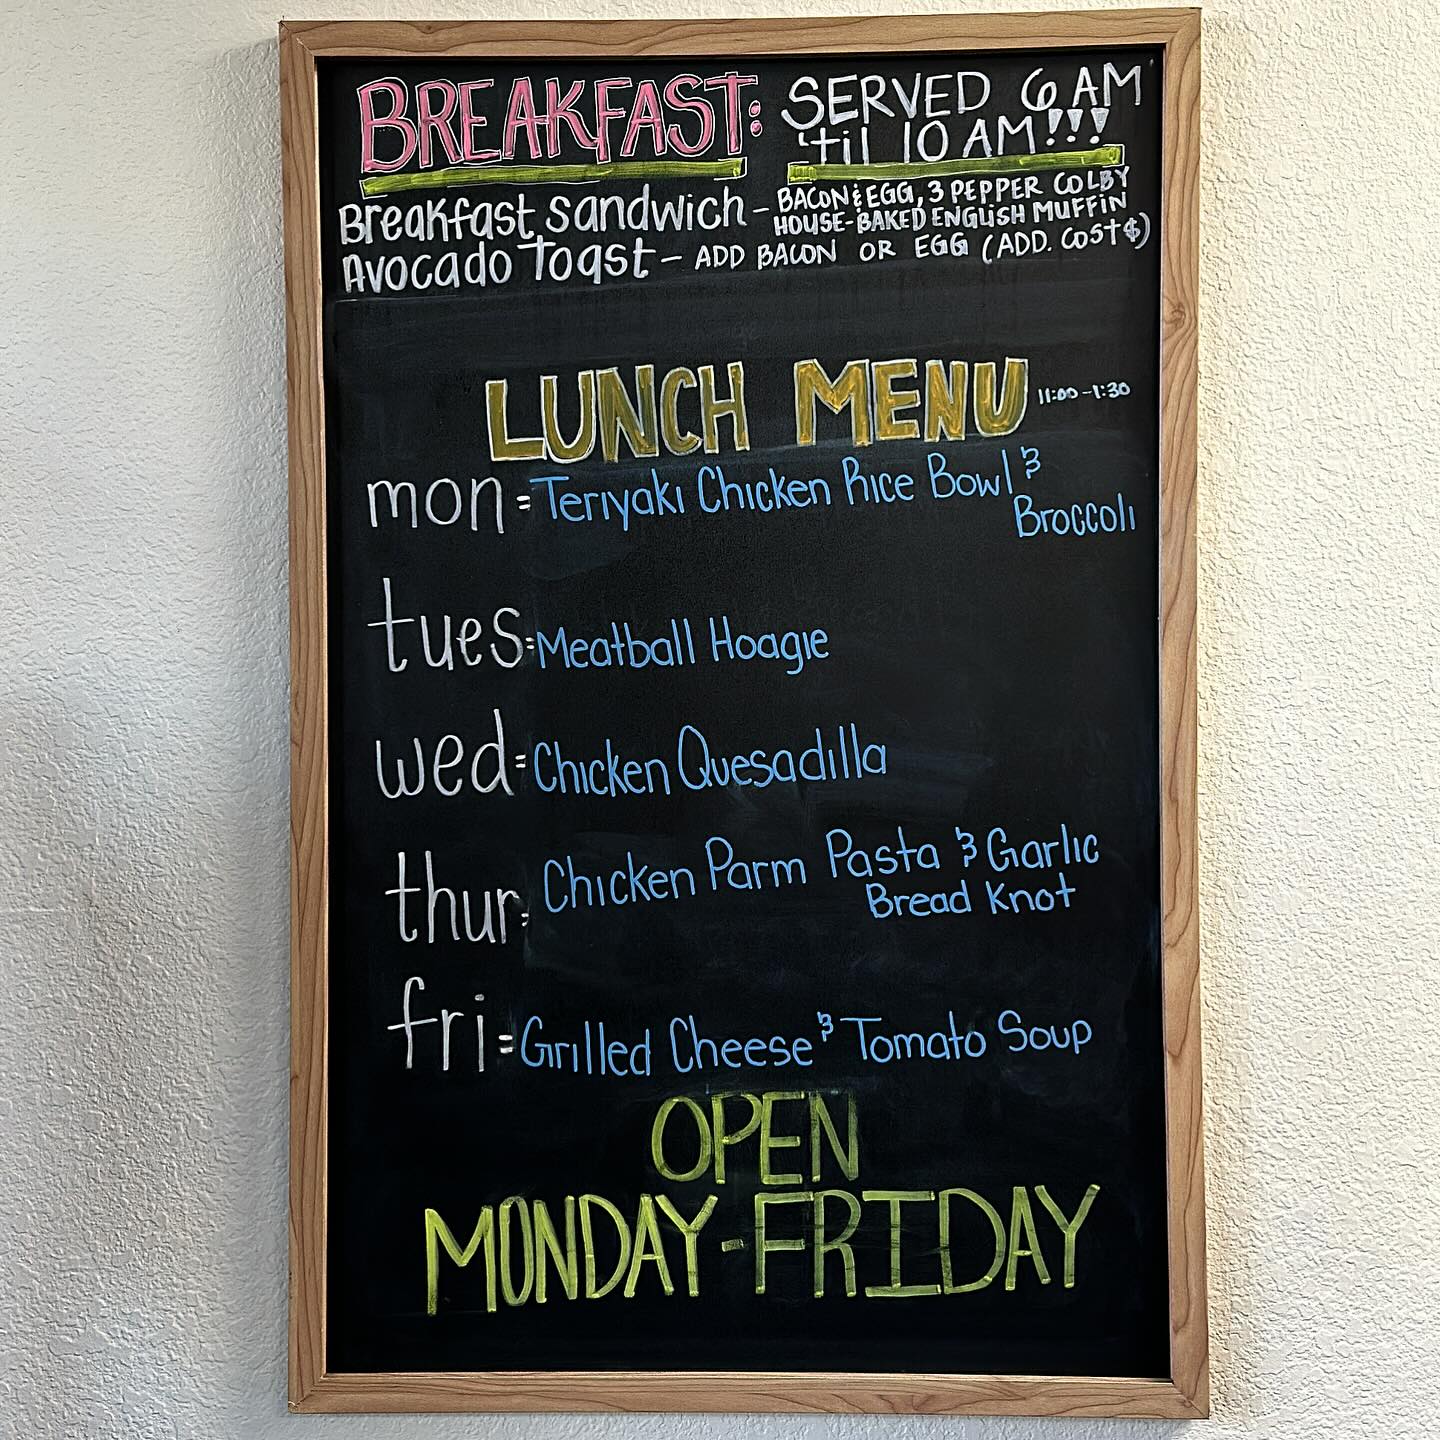 BREAKFAST: SERVED 6 AM
'til 10 AM!!!
Breakfast sandwich - BACON & EGG, 3 PEPPER COLBY
HOUSE-BAKED ENGLISH MUFFIN
Avocado Toast - ADD BACON OR EGG (ADD. COST $)
LUNCH MENU 11:00-1:30
mon = Teriyaki Chicken Rice Bowl &
Broccoli
tues = Meatball Hoagie
wed = Chicken Quesadilla
thur = Chicken Parm Pasta & Garlic
Bread Knot
fri = Grilled Cheese & Tomato Soup
OPEN
MONDAY-FRIDAY